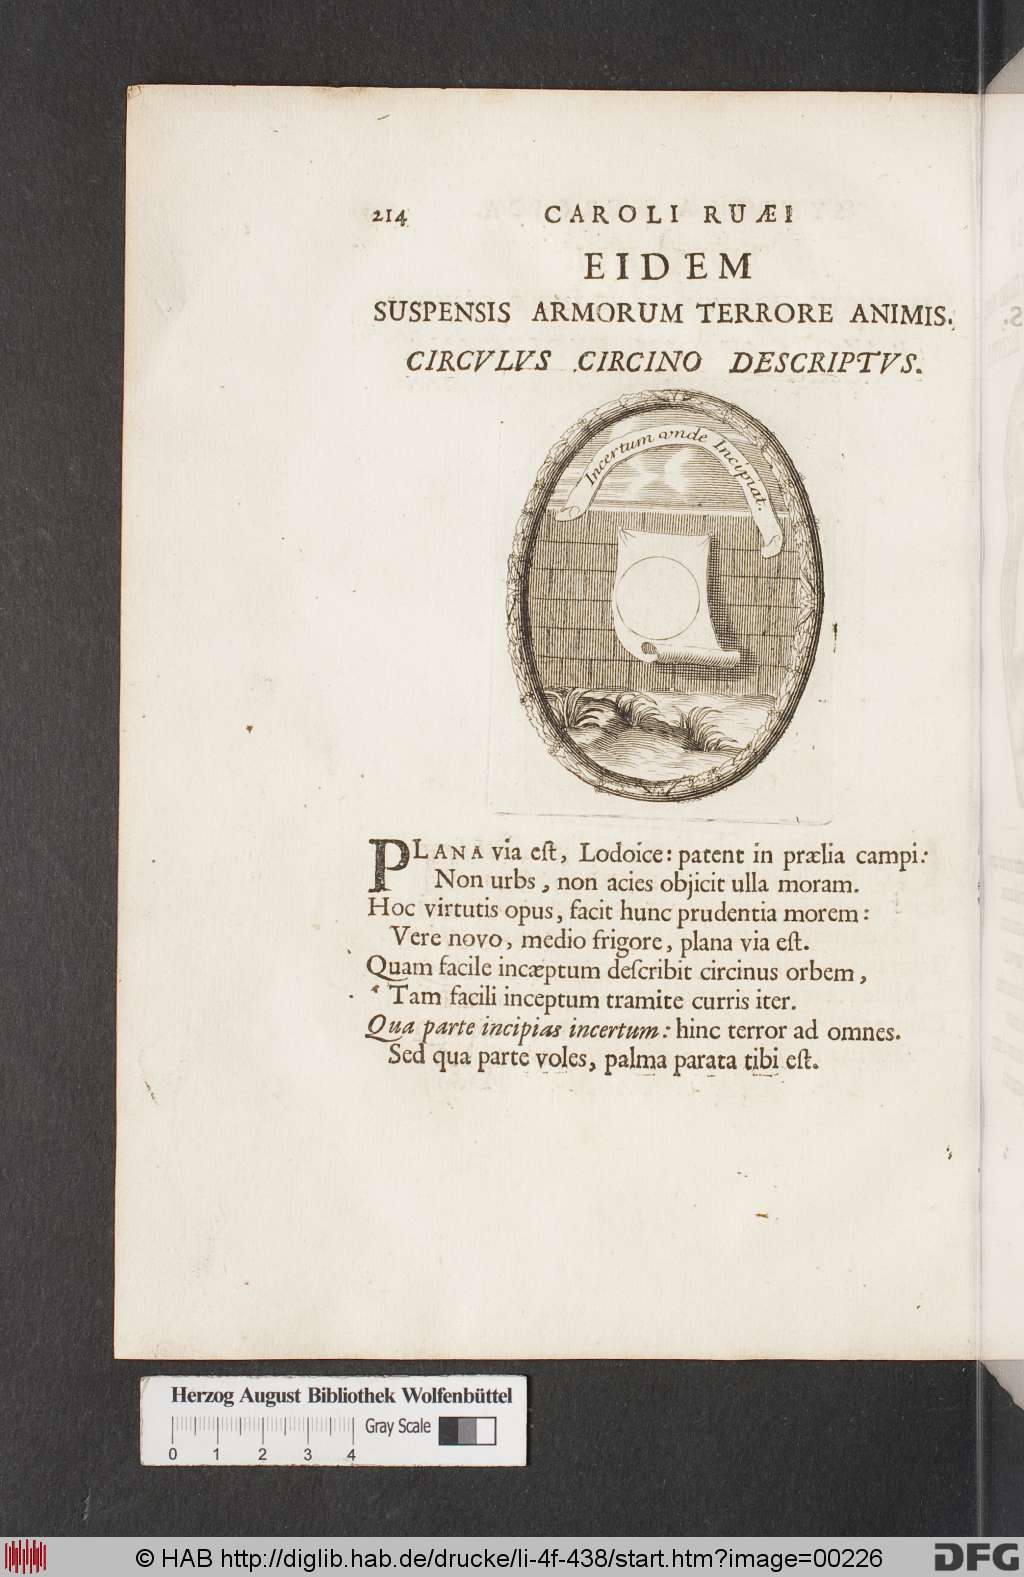 214 CAROLI RUÆI
EIDEM
SUSPENSIS ARMORUM TERRORE ANIMIS.
CIRCVLVS CIRCINO DESCRIPTVS.
Incertum vnde Incipiat.
PLANA via eſt, Lodoice: patent in prælia campi:
Non urbs, non acies objicit ulla moram.
Hoc virtutis opus, facit hunc prudentia morem:
Vere novo, medio frigore, plana via eſt.
Quam facile incæptum deſcribit circinus orbem,
Tam facili inceptum tramite curris iter.
Qua parte incipias incertum: hinc terror ad omnes.
Sed qua parte voles, palma parata tibi eſt.
Herzog August Bibliothek Wolfenbüttel
Gray Scale
0 1 2 3 4
© HAB http://diglib.hab.de/drucke/li-4f-438/start.htm?image=00226
DFG